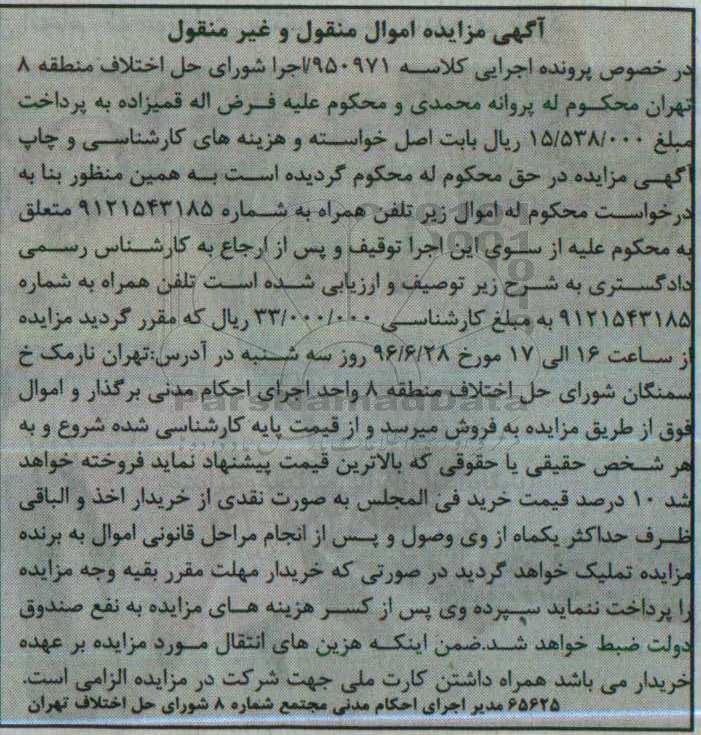 آگهی مزایده اموال منقول و غیر منقول
در خصوص پرونده اجرایی کلاسه ۹۵۰۹۷۱/اجرا شورای حل اختلاف منطقه ۸
تهران محکوم له پروانه محمدی و محکوم علیه فرض اله قمیزاده به پرداخت
مبلغ ۱۵/۵۳۸/۰۰۰ ریال بابت اصل خواسته و هزینه های کارشناسی و چاپ
آگهی مزایده در حق محکوم له محکوم گردیده است به همین منظور بنا به
درخواست محکوم له اموال زیر تلفن همراه به شماره ۹۱۲۱۵۴۳۱۸۵ متعلق
به محکوم علیه از سوی این اجرا توقیف و پس از ارجاع به کارشناس رسمی
دادگستری به شرح زیر توصیف و ارزیابی شده است تلفن همراه به شماره
۹۱۲۱۵۴۳۱۸۵ به مبلغ کارشناسی ۳۳/۰۰۰/۰۰۰ ریال که مقرر گردید مزایده
از ساعت ۱۶ الی ۱۷ مورخ ۹۶/۶/۲۸ روز سه شنبه در آدرس:تهران نارمک خ
سمنگان شورای حل اختلاف منطقه ۸ واحد اجرای احکام مدنی برگذار و اموال
ParsNamadData
فوق از طریق مزایده به فروش میرسد و از قیمت پایه کارشناسی شده شروع و به
هر شخص حقیقی یا حقوقی که بالاترین قیمت پیشنهاد نماید فروخته خواهد
شد ۱۰ درصد قیمت خرید فی المجلس به صورت نقدی از خریدار اخذ و الباقی
ظرف حداکثر یکماه از وی وصول و پس از انجام مراحل قانونی اموال به برنده
مزایده تملیک خواهد گردید در صورتی که خریدار مهلت مقرر بقیه وجه مزایده
را پرداخت ننماید سپرده وی پس از کسر هزینه های مزایده به نفع صندوق
دولت ضبط خواهد شد.ضمن اینکه هزین های انتقال مورد مزایده بر عهده
خریدار می باشد همراه داشتن کارت ملی جهت شرکت در مزایده الزامی است.
۶۵۶۲۵ مدیر اجرای احکام مدنی مجتمع شماره ۸ شورای حل اختلاف تهران